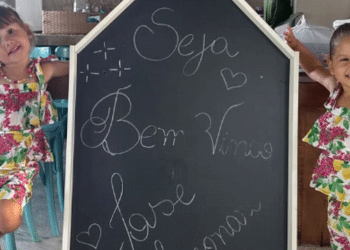 Seja
Bem Vindo
fase